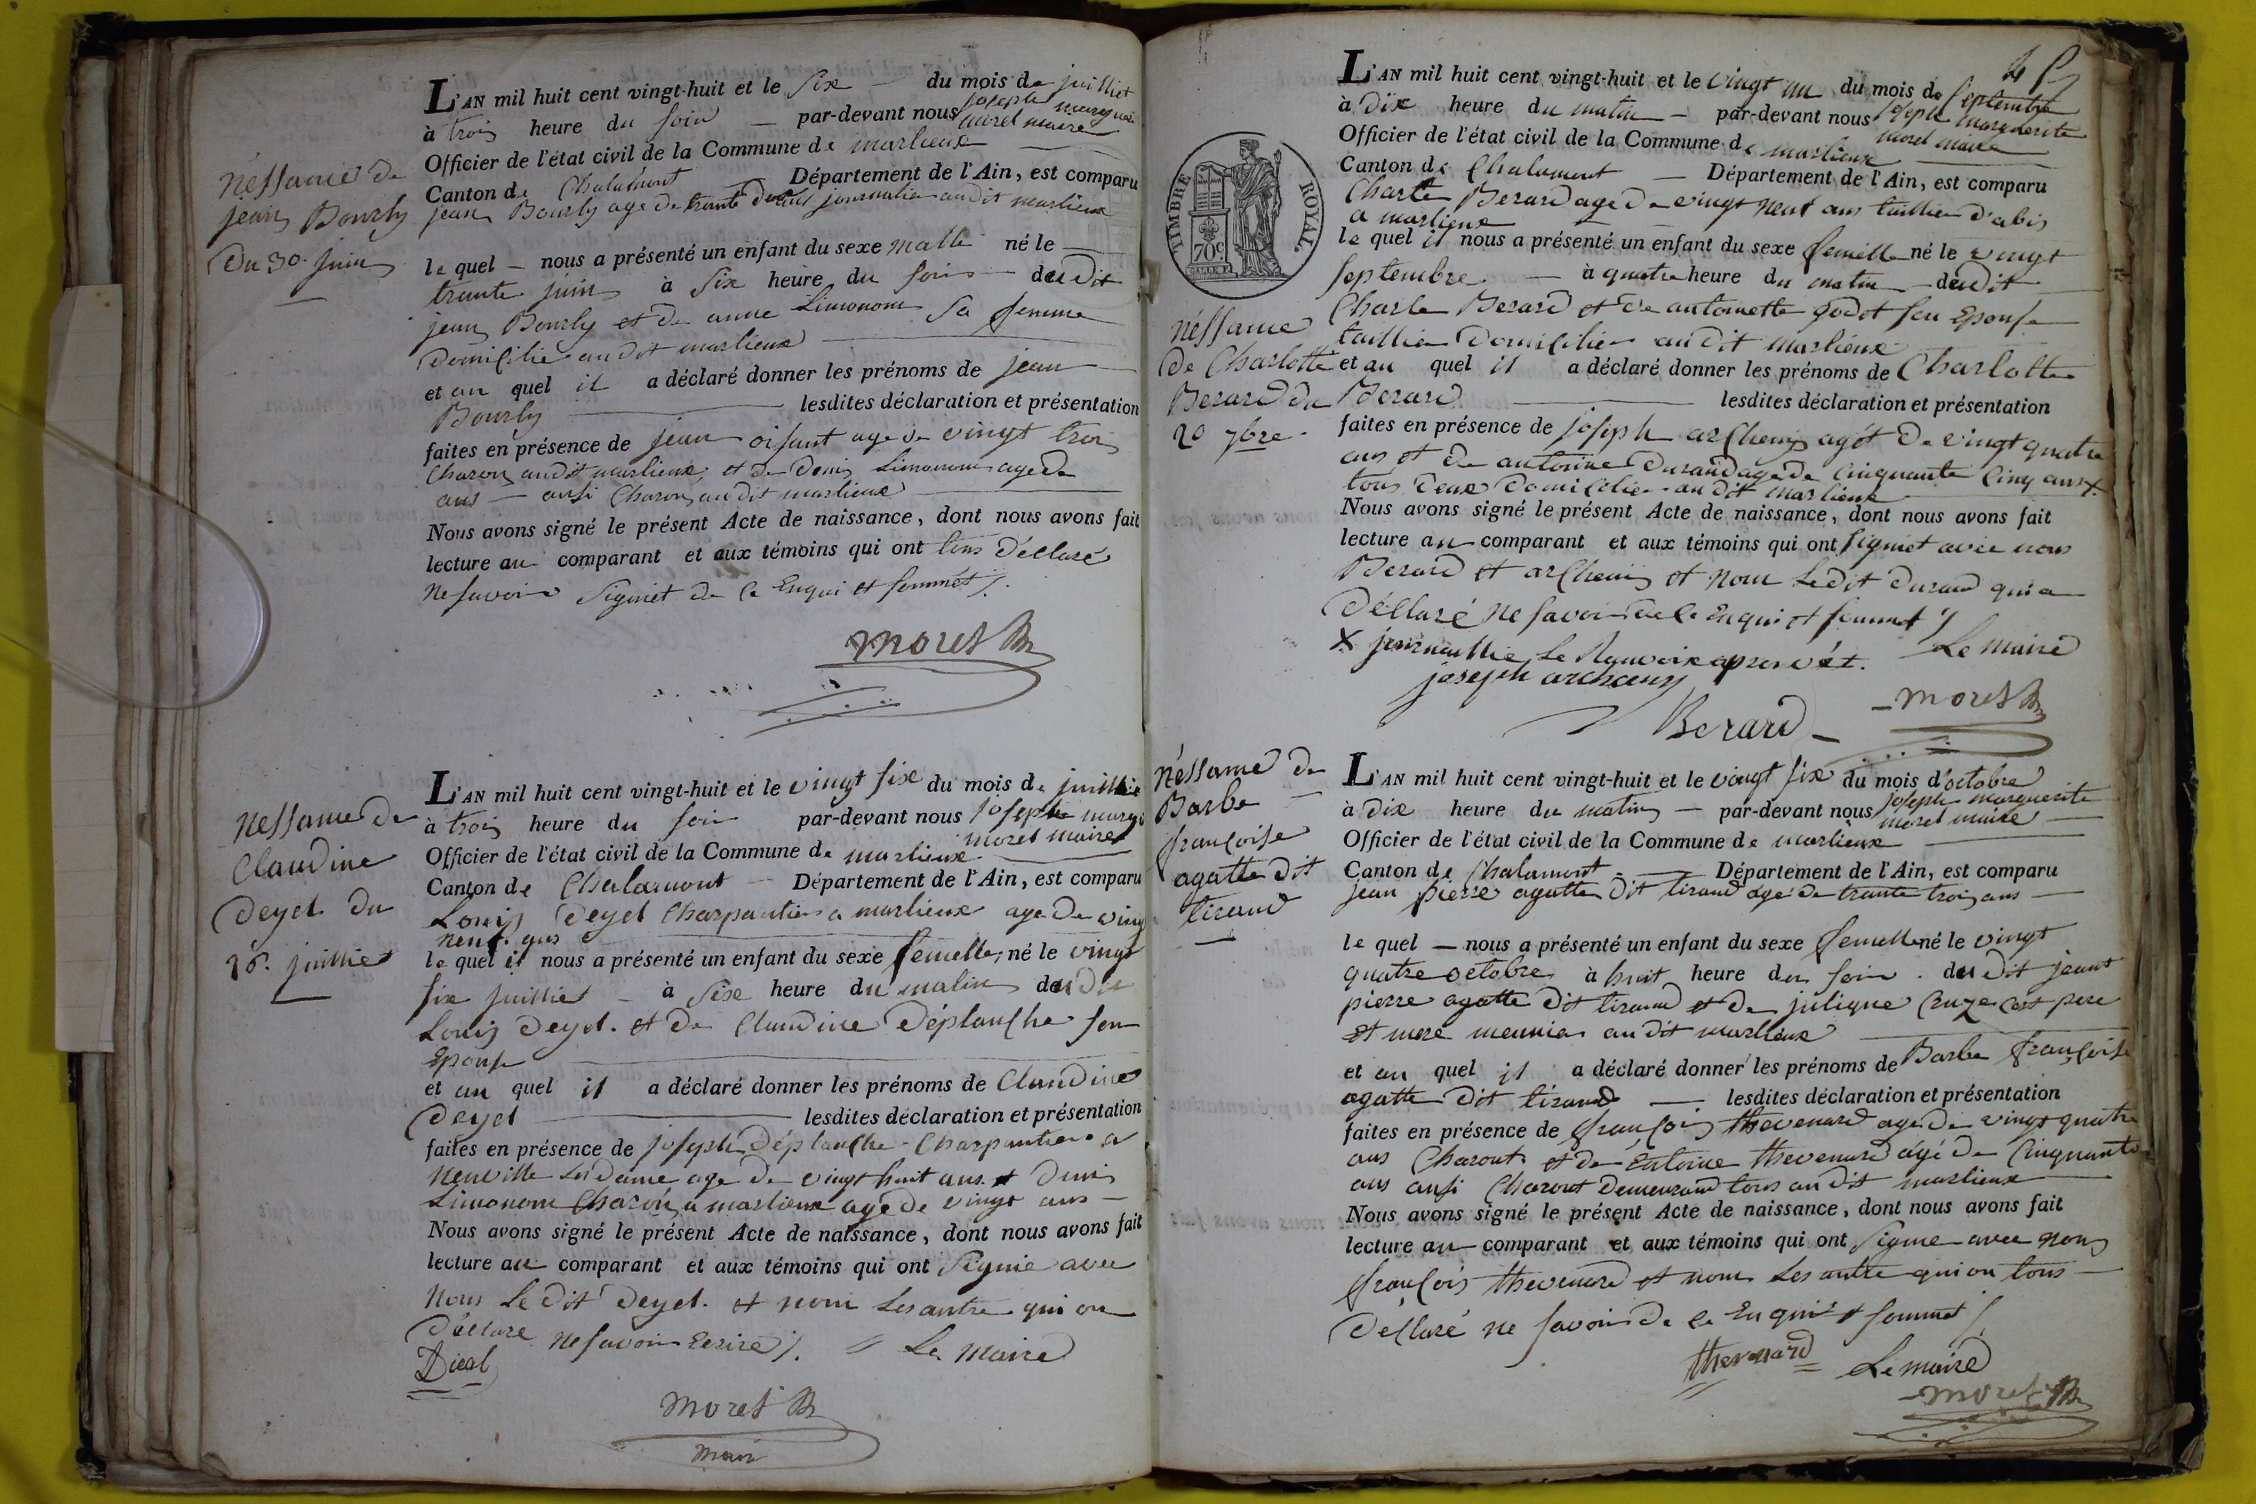 Néssance de
jean Bourly
Du 30. juin
L'AN mil huit cent vingt-huit et le Six du mois de juilliet
à trois heure du soir par-devant nous joseph
morel maire
Officier de l'état civil de la Commune de marlieux
Canton de Chalamont Département de l'Ain, est comparu
jean Bourly age de trante journalier audit marlieux
le quel nous a présenté un enfant du sexe malle né le
trante juin à Six heure du soir du dit
jean Bourly et de anne Limonom Sa femme
Domicilié audit marlieux
et au quel il a déclaré donner les prénoms de jean
Bourly lesdites déclaration et présentation
faites en présence de jean oisant age de vingt trois
Charon audit marlieux et de Denis Limonom age de
ans ausi Charon audit marlieux
Nous avons signé le présent Acte de naissance, dont nous avons fait
lecture au comparant et aux témoins qui ont tous Déclaré
ne savoir Siginét de ce Enqui et sommét
morel
Nessance de
Claudine
Deyet du
26. juilliet
L'AN mil huit cent vingt-huit et le vingt six du mois de juilliet
à trois heure du soir par-devant nous joseph
morel maire
Officier de l'état civil de la Commune de marlieux
Canton de Chalamont Département de l'Ain, est comparu
Louis Deyet Charpantier a marlieux age de ving
neuf ans
le quel il nous a présenté un enfant du sexe femelle né le vingt
six juilliet à Sixe heure du matin du dit
Louis Deyet. et de Claudine Déplanche son
Epouse
et au quel il a déclaré donner les prénoms de Claudine
Deyet lesdites déclaration et présentation
faites en présence de joseph Déplanche Charpantier a
neuville les dame age de vingt huit ans et Denis
Limonom Charon a marlieux age de vingt ans
Nous avons signé le présent Acte de naissance, dont nous avons fait
lecture au comparant et aux témoins qui ont Signie avec
nous le dit Deyet. et nom les autre qui on
Déclare ne savoir Ecrire Le Maire
morel
TIMBRE ROYAL
70c
L'AN mil huit cent vingt-huit et le vingt un du mois de Septembre
à Dix heure du matin par-devant nous joseph marguerite
morel maire
Officier de l'état civil de la Commune de marlieux
Canton de Chalamont Département de l'Ain, est comparu
Charle Berard age de vingt neuf ans taillier d'abis
a marlieux
le quel il nous a présenté un enfant du sexe femelle né le vingt
septembre à quatre heure du matin du dit
Charle Berard et de antoinette godet son Epouse
taillier Domicilié audit marlieux
et au quel il a déclaré donner les prénoms de Charlotte
Berard lesdites déclaration et présentation
néssance
de Charlotte
Berard du
20 7bre
faites en présence de joseph agét de vingt quatre
ans et de antoinne Durand age de Cinquante Cinq ans X
tous deux Domicilie audit marlieux
Nous avons signé le présent Acte de naissance, dont nous avons fait
lecture au comparant et aux témoins qui ont signiet avec nous
Berard et et nom le dit Durand qui a
Déllaré ne savoir de ce Enqui et sommet
X journallie le Ranvoix Le Maire
joseph
Berard
morel
Néssance de
Barbe
françoise
agatte dit
tirand
L'AN mil huit cent vingt-huit et le vingt six du mois d'octobre
à Dix heure du matin par-devant nous joseph marguerite
morel maire
Officier de l'état civil de la Commune de marlieux
Canton de Chalamont Département de l'Ain, est comparu
jean pierre agatte Dit tirand age de trante trois ans
le quel nous a présenté un enfant du sexe femelle né le vingt
quatre octobre à huit heure du soir du dit jeant
pierre agatte dit tirand et de Cruze pere
et mere meunier au dit marlieux
et au quel il a déclaré donner les prénoms de Barbe françoise
agatte dit tirand lesdites déclaration et présentation
faites en présence de françois thevenard age de vingt quatre
ans Charont et de thevenard agé de Cinquante
ans ausi Charont Demeurand tous audit marlieux
Nous avons signé le présent Acte de naissance, dont nous avons fait
lecture au comparant et aux témoins qui ont Signie avec nous
françois thevenard et nom les autre qui on tous
Déclaré ne savoir de ce Enqui et sommet
thevenard Le maire
morel